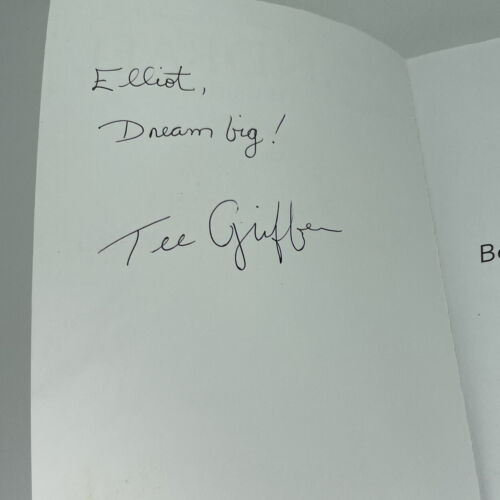 Elliot,
Dream big!
Tee Griffen
B